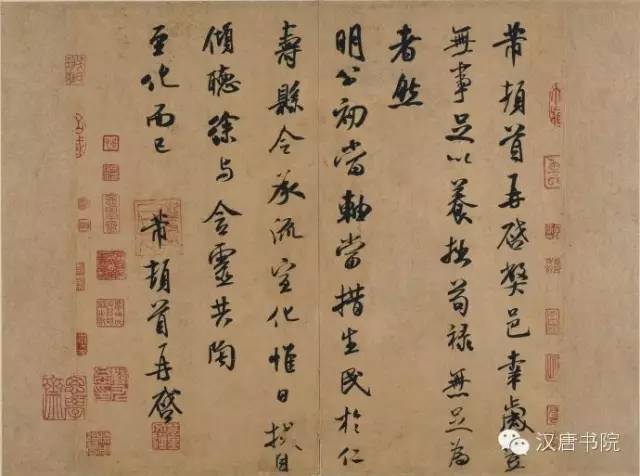 芾頓首再啓弊邑幸歲豐
無事足以養拙苟禄無足為
者然
明公初當軸當措生民於仁
壽縣令承流宣化惟日拭目
傾聽徐与含靈共陶
至化而已
芾頓首再啓
汉唐书院